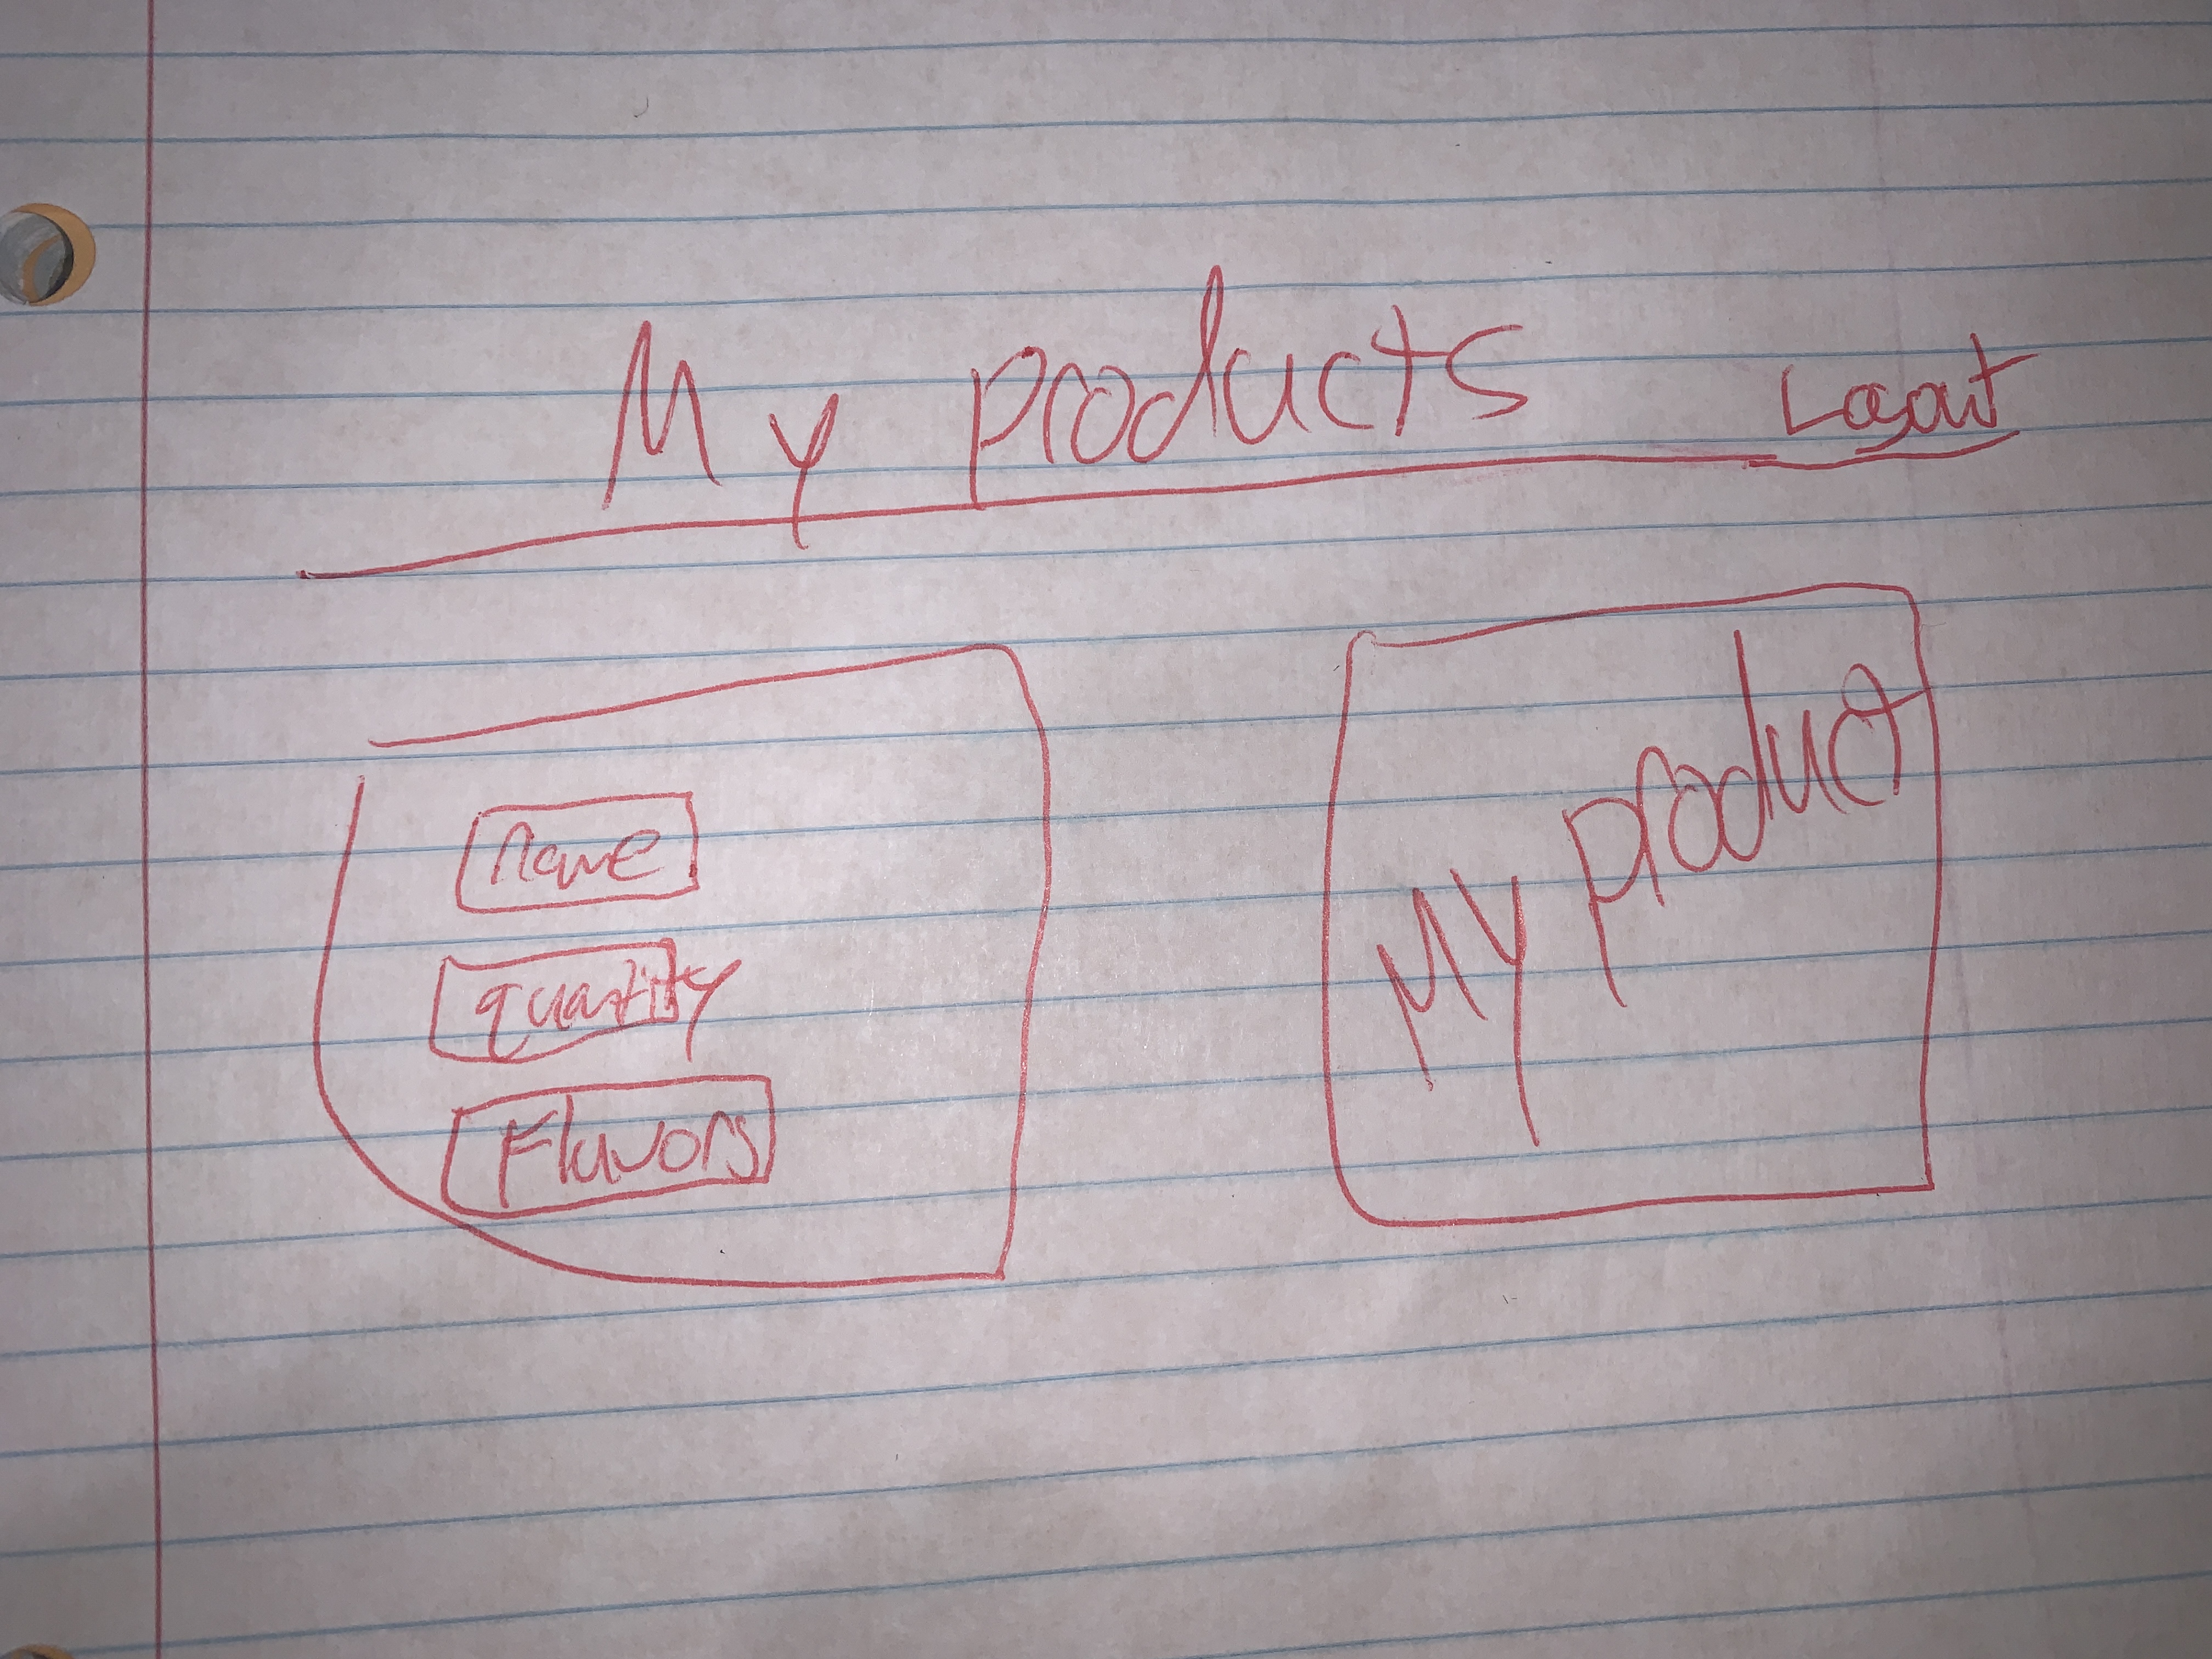 My products Logout
name
quantity
Flavors
My product